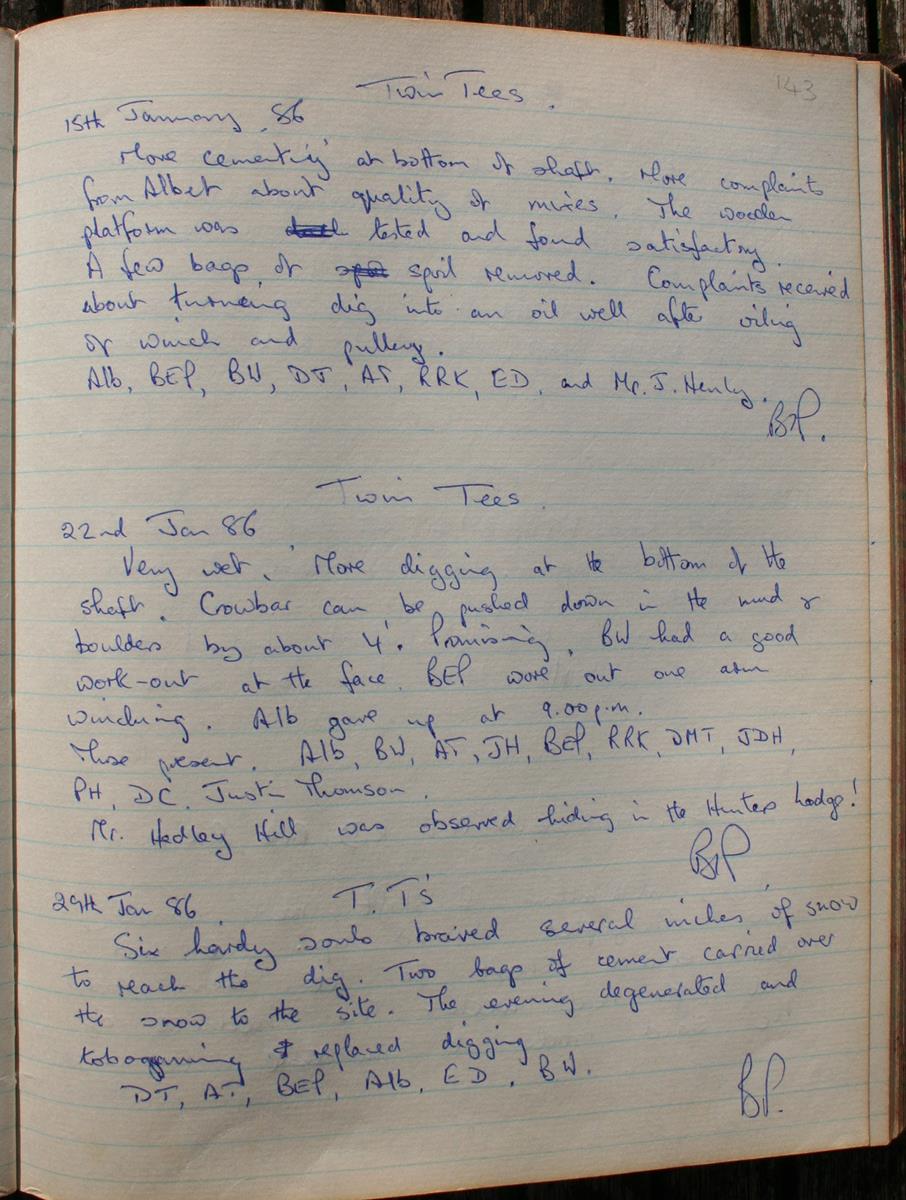 143
Twin Tees.
15th January .86
More cementing at bottom of shaft. More complaints
from Albert about quality of mixes. The wooden
platform was tested and found satisfactory.
A few bags of spoil removed. Complaints received
about turning dig into an oil well after oiling
of winch and pulley.
Alb, BEP, BW, DT, AT, RRK, ED, and Mr. J. Henly.
BP.
Twin Tees
22nd Jan 86
Very wet. More digging at the bottom of the
shaft. Crowbar can be pushed down in the mud &
boulders by about 4'. Promising. BW had a good
work-out at the face. BEP wore out one arm
winching. Alb gave up at 9.00p.m.
Those present. Alb, BW, AT, JH, BEP, RRK, DMT, JDH,
PH, DC, Justin Thomson.
Mr. Hedley Hill was observed hiding in the Hunters Lodge!
BP
29th Jan 86. T.T's
Six hardy souls braived several inches of snow
to reach the dig. Two bags of cement carried over
the snow to the site. The evening degenerated and
tobogganing replaced digging
DT, AT, BEP, Alb, ED, BW.
BP.